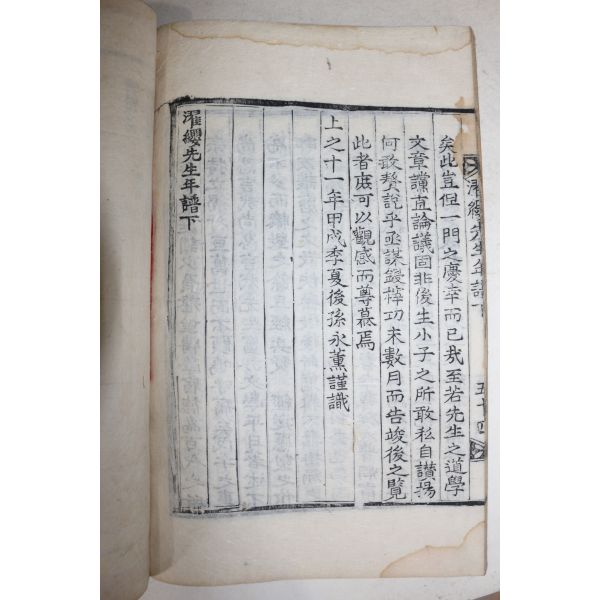 濯纓先生年譜下
五十四
矣此豈但一門之慶幸而已哉至若先生之道學
文章讜直論議固非後生小子之所敢私自讃揚
何敢贅說乎亟謀鋟梓功未數月而告竣後之覽
此者庶可以觀感而尊慕焉
上之十一年甲戌季夏後孫永薰謹識
濯纓先生年譜下